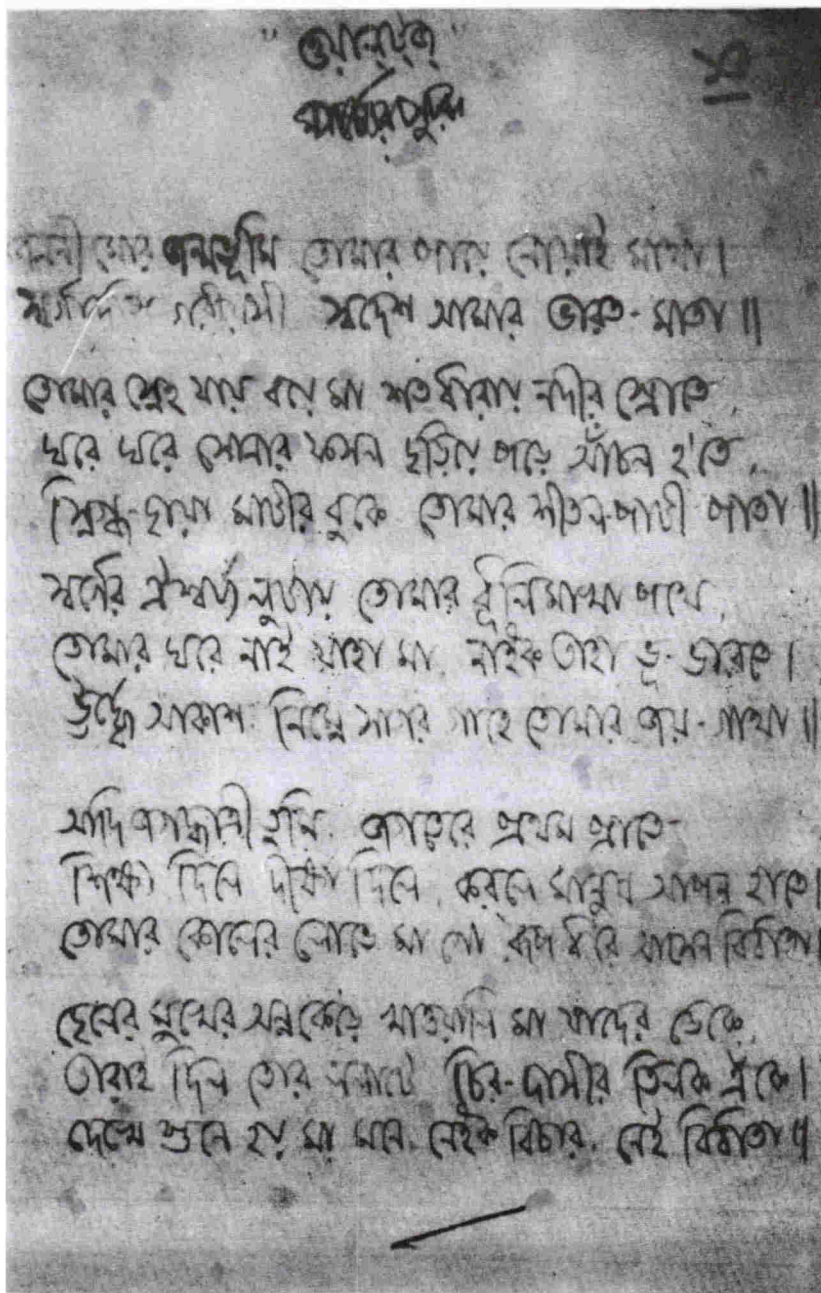 "ওয়াল্‌ট্জ্‌"
মার্চের সুর
১৫
জননী মোর জন্মভূমি তোমার পায়ে নোয়াই মাথা।
স্বর্গাদপি গরীয়সী স্বদেশ আমার ভারত-মাতা॥
তোমার স্নেহ যায় বয়ে মা শত ধারায় নদীর স্রোতে,
ঘরে ঘরে সোনার ফসল ছড়িয়ে পড়ে আঁচল হ'তে,
স্নিগ্ধ-ছায়া মাটীর বুকে তোমার শীতল-পাটী পাতা॥
স্বর্গের ঐশ্বর্য লুটায় তোমার ধূলিমাখা পথে,
তোমার ঘরে নাই যাহা মা, নাইক তাহা ভূ-ভারতে।
ঊর্দ্ধে আকাশ নিম্নে সাগর গাহে তোমার জয়-গাথা॥
আদি জগদ্ধাত্রী তুমি জগতেরে প্রথম প্রাতে-
শিক্ষা দিলে দীক্ষা দিলে, করলে মানুষ আপন হাতে।
তোমার কোলের লোভে মা গো রূপ ধ'রে আসেন বিধাতা।
ছেলের মুখের অন্ন কেড়ে খাওয়ালি মা যাদের ডেকে,
তারাই দিল তোর ললাটে চির-দাসীর তিলক এঁকে।
দেখে শুনে হয় মা মনে, নেইক বিচার, নেই বিধাতা॥